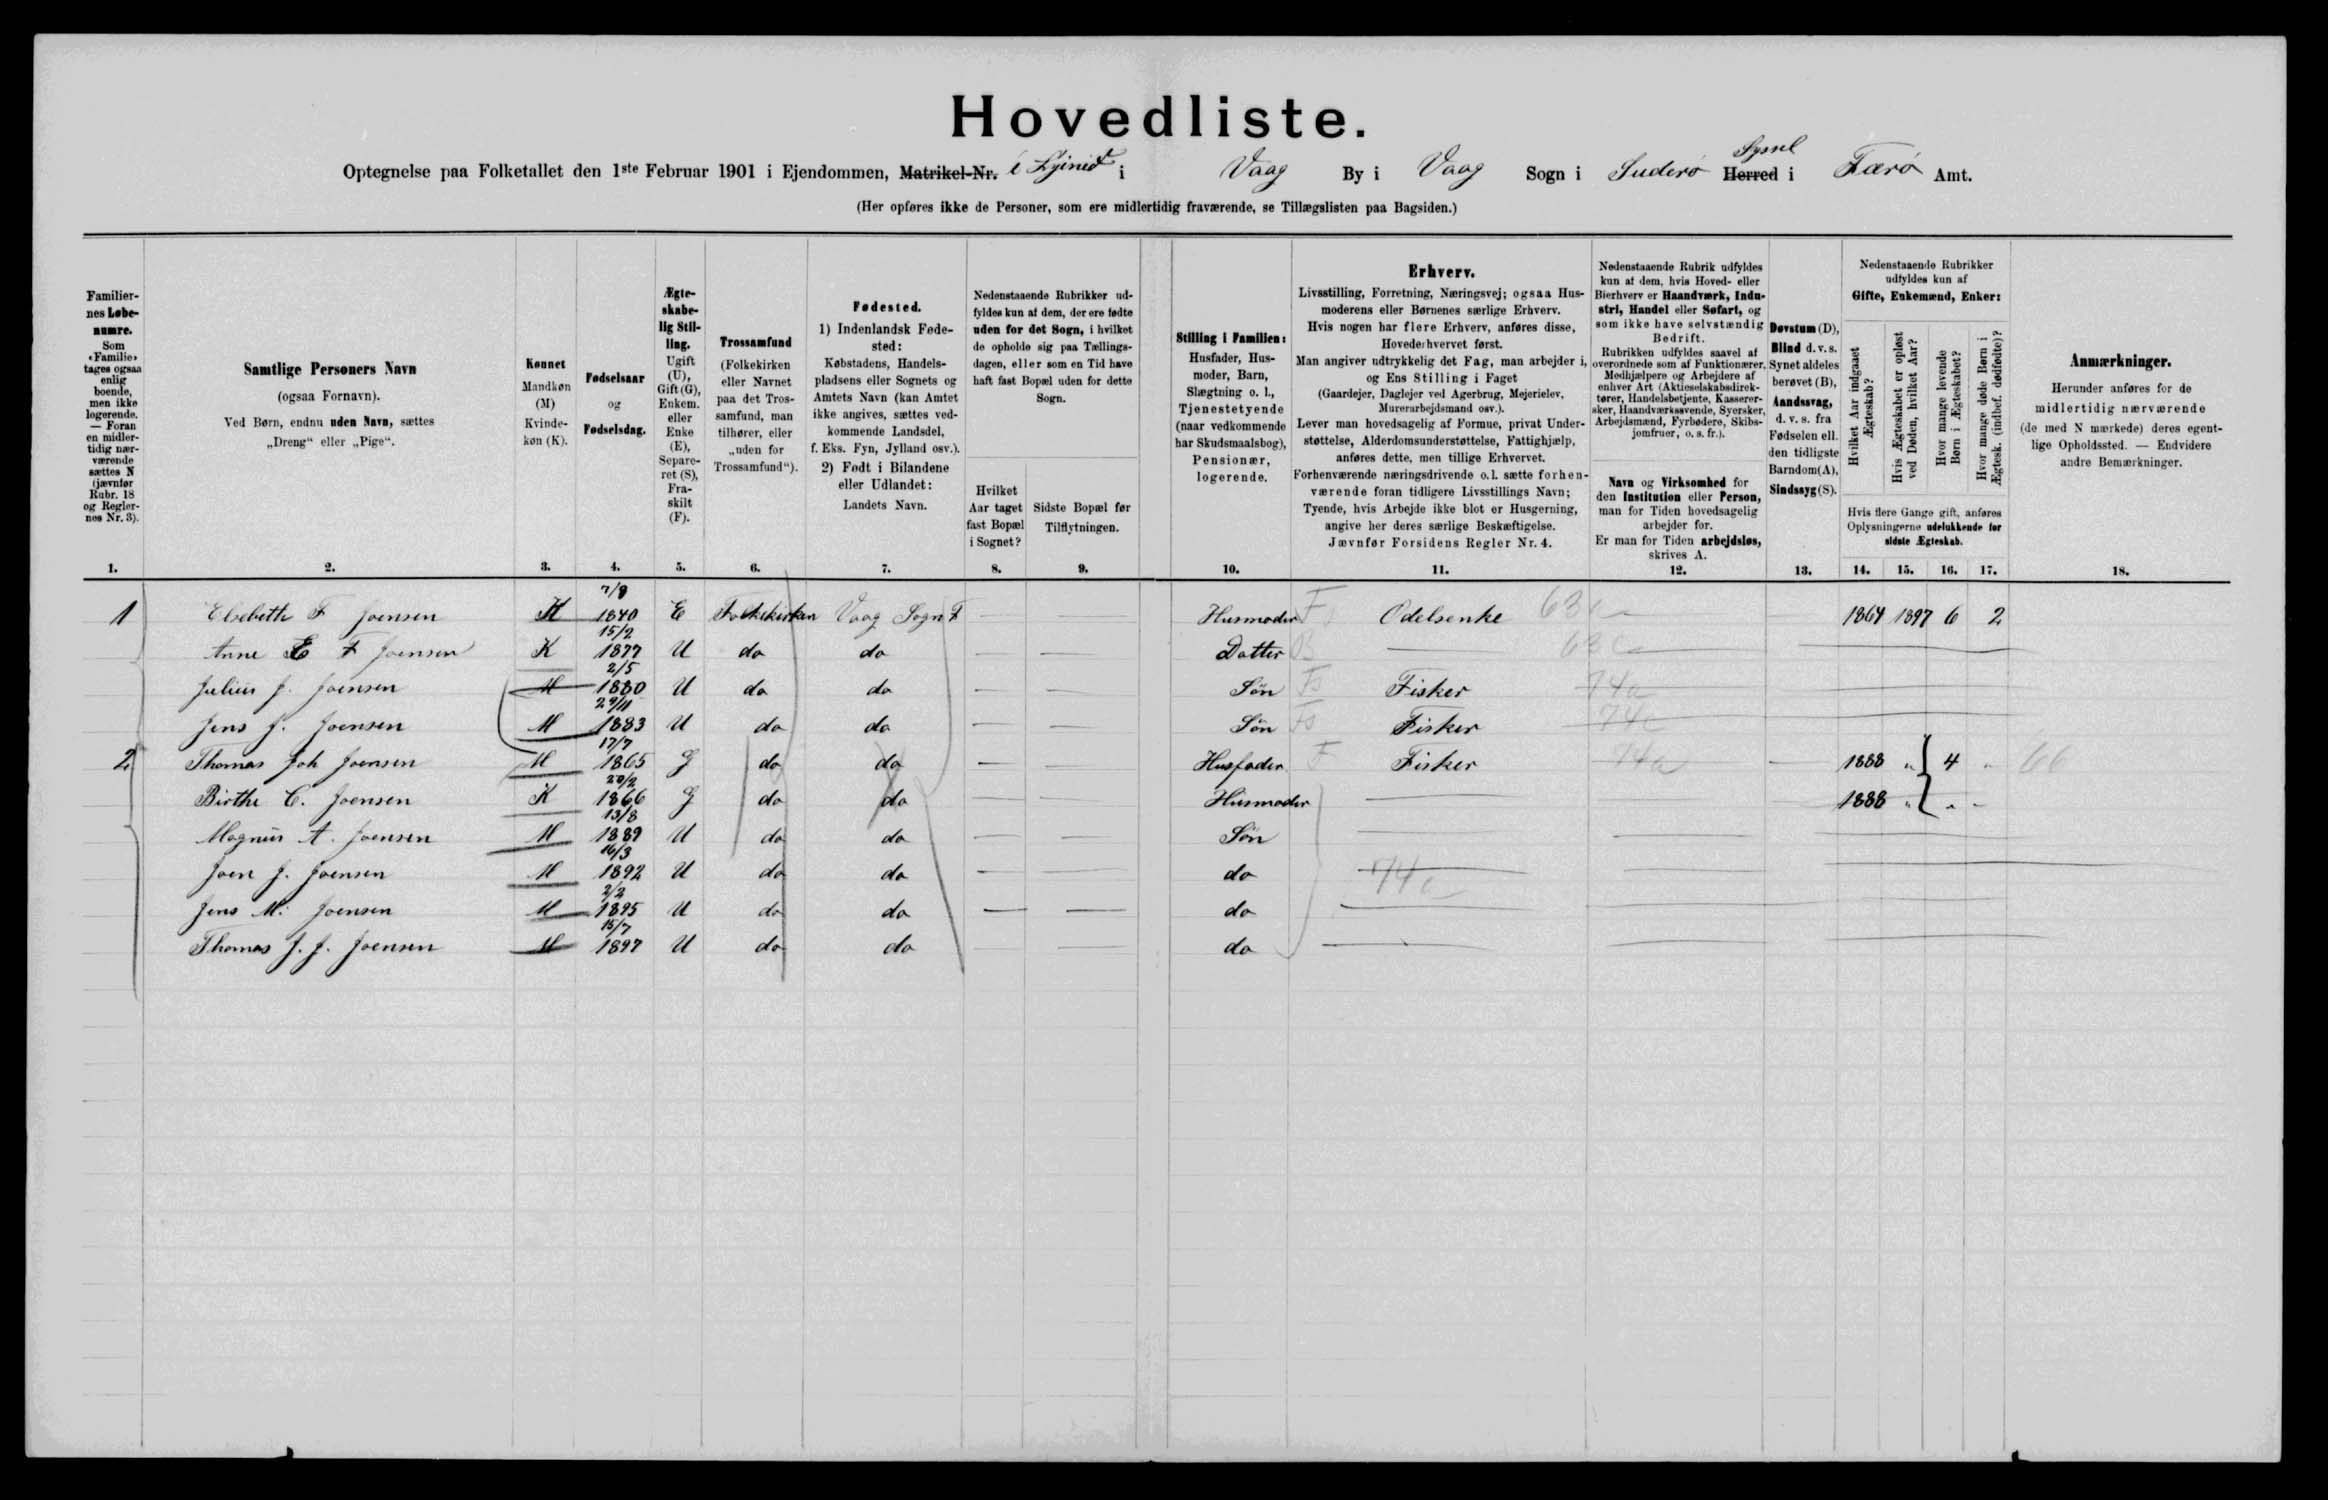 Hovedliste.
Optegnelse paa Folketallet den 1ste Februar 1901 i Ejendommen, Matrikel-Nr. i Vaag By i Vaag Sogn i Suderø Herred Syssel i Færø Amt.
(Her opføres ikke de Personer, som ere midlertidig fraværende, se Tillægslisten paa Bagsiden.)
Familiernes Løbenumre.
Som «Familie» tages ogsaa enlig boende, men ikke logerende. — Foran en midlertidig nærværende sættes N (jævnfør Rubr. 18 og Reglernes Nr. 3).
Samtlige Personers Navn
(ogsaa Fornavn).
Ved Børn, endnu uden Navn, sættes
„Dreng“ eller „Pige“.
Kønnet
Mandkøn (M)
Kvindekøn (K).
Fødselsaar
og
Fødselsdag.
Ægteskabelig Stilling.
Ugift (U), Gift (G), Enkem. eller Enke (E), Separeret (S), Fraskilt (F).
Trossamfund
(Folkekirken eller Navnet paa det Trossamfund, man tilhører, eller „uden for Trossamfund“).
Fødested.
1) Indenlandsk Fødested:
Købstadens, Handelspladsens eller Sognets og Amtets Navn (kan Amtet ikke angives, sættes vedkommende Landsdel, f. Eks. Fyn, Jylland osv.).
2) Født i Bilandene eller Udlandet:
Landets Navn.
Nedenstaaende Rubrikker udfyldes kun af dem, der ere fødte uden for det Sogn, i hvilket de opholde sig paa Tællingsdagen, eller som en Tid have haft fast Bopæl uden for dette Sogn.
Hvilket Aar taget fast Bopæl i Sognet?
Sidste Bopæl før Tilflytningen.
Stilling i Familien:
Husfader, Husmoder, Barn, Slægtning o. l., Tjenestetyende (naar vedkommende har Skudsmaalsbog), Pensionær, logerende.
Erhverv.
Livsstilling, Forretning, Næringsvej; ogsaa Husmoderens eller Børnenes særlige Erhverv.
Hvis nogen har flere Erhverv, anføres disse, Hovederhvervet først.
Man angiver udtrykkelig det Fag, man arbejder i, og Ens Stilling i Faget
(Gaardejer, Daglejer ved Agerbrug, Mejerielev, Murerarbejdsmand osv.).
Lever man hovedsagelig af Formue, privat Understøttelse, Alderdomsunderstøttelse, Fattighjælp, anføres dette, men tillige Erhvervet.
Forhenværende næringsdrivende o. l. sætte forhenværende foran tidligere Livsstillings Navn;
Tyende, hvis Arbejde ikke blot er Husgerning, angive her deres særlige Beskæftigelse.
Jævnfør Forsidens Regler Nr. 4.
Nedenstaaende Rubrik udfyldes kun af dem, hvis Hoved- eller Bierhverv er Haandværk, Industri, Handel eller Søfart, og som ikke have selvstændig Bedrift.
Rubrikken udfyldes saavel af overordnede som af Funktionærer, Medhjælpere og Arbejdere af enhver Art (Aktieselskabsdirektører, Handelsbetjente, Kasserersker, Haandværkssvende, Syersker, Arbejdsmænd, Fyrbødere, Skibsjomfruer, o. s. fr.).
Navn og Virksomhed for den Institution eller Person, man for Tiden hovedsagelig arbejder for.
Er man for Tiden arbejdsløs, skrives A.
Døvstum (D), Blind d. v. s. Synet aldeles berøvet (B), Aandssvag, d. v. s. fra Fødselen ell. den tidligste Barndom (A), Sindssyg (S).
Nedenstaaende Rubrikker udfyldes kun af
Gifte, Enkemænd, Enker:
Hvilket Aar indgaaet Ægteskab?
Hvis Ægteskabet er opløst ved Døden, hvilket Aar?
Hvor mange levende Børn i Ægteskabet?
Hvor mange døde Børn i Ægtesk. (indbef. dødfødte)?
Hvis flere Gange gift, anføres Oplysningerne udelukkende for sidste Ægteskab.
Anmærkninger.
Herunder anføres for de midlertidig nærværende (de med N mærkede) deres egentlige Opholdssted. — Endvidere andre Bemærkninger.
1. 2. 3. 4. 5. 6. 7. 8. 9. 10. 11. 12. 13. 14. 15. 16. 17. 18.
1 Elsebeth F Joensen K 7/8 1840 E Folkekirken Vaag Sogn F — — Husmoder F Odelsenke 63 — 1864 1897 6 2
Anne E F Joensen K 15/2 1877 U do do — — Datter — 63
Julius J. Joensen M 2/5 1880 U do do — — Søn Fs Fisker 74a
Jens J. Joensen M 29/11 1883 U do do — — Søn Fs Fisker 74a
2 Thomas Joh Joensen M 17/7 1865 G do do — — Husfader F Fisker 74a — 1888 „ 4 „ 66
Birthe C. Joensen K 20/2 1866 G do do — — Husmoder — 1888 „ „ -
Magnus A. Joensen M 13/8 1889 U do do — — Søn —
Joen J. Joensen M 16/3 1892 U do do — — do 74a
Jens M. Joensen M 2/2 1895 U do do — — do —
Thomas J. J. Joensen M 15/7 1897 U do do — — do —